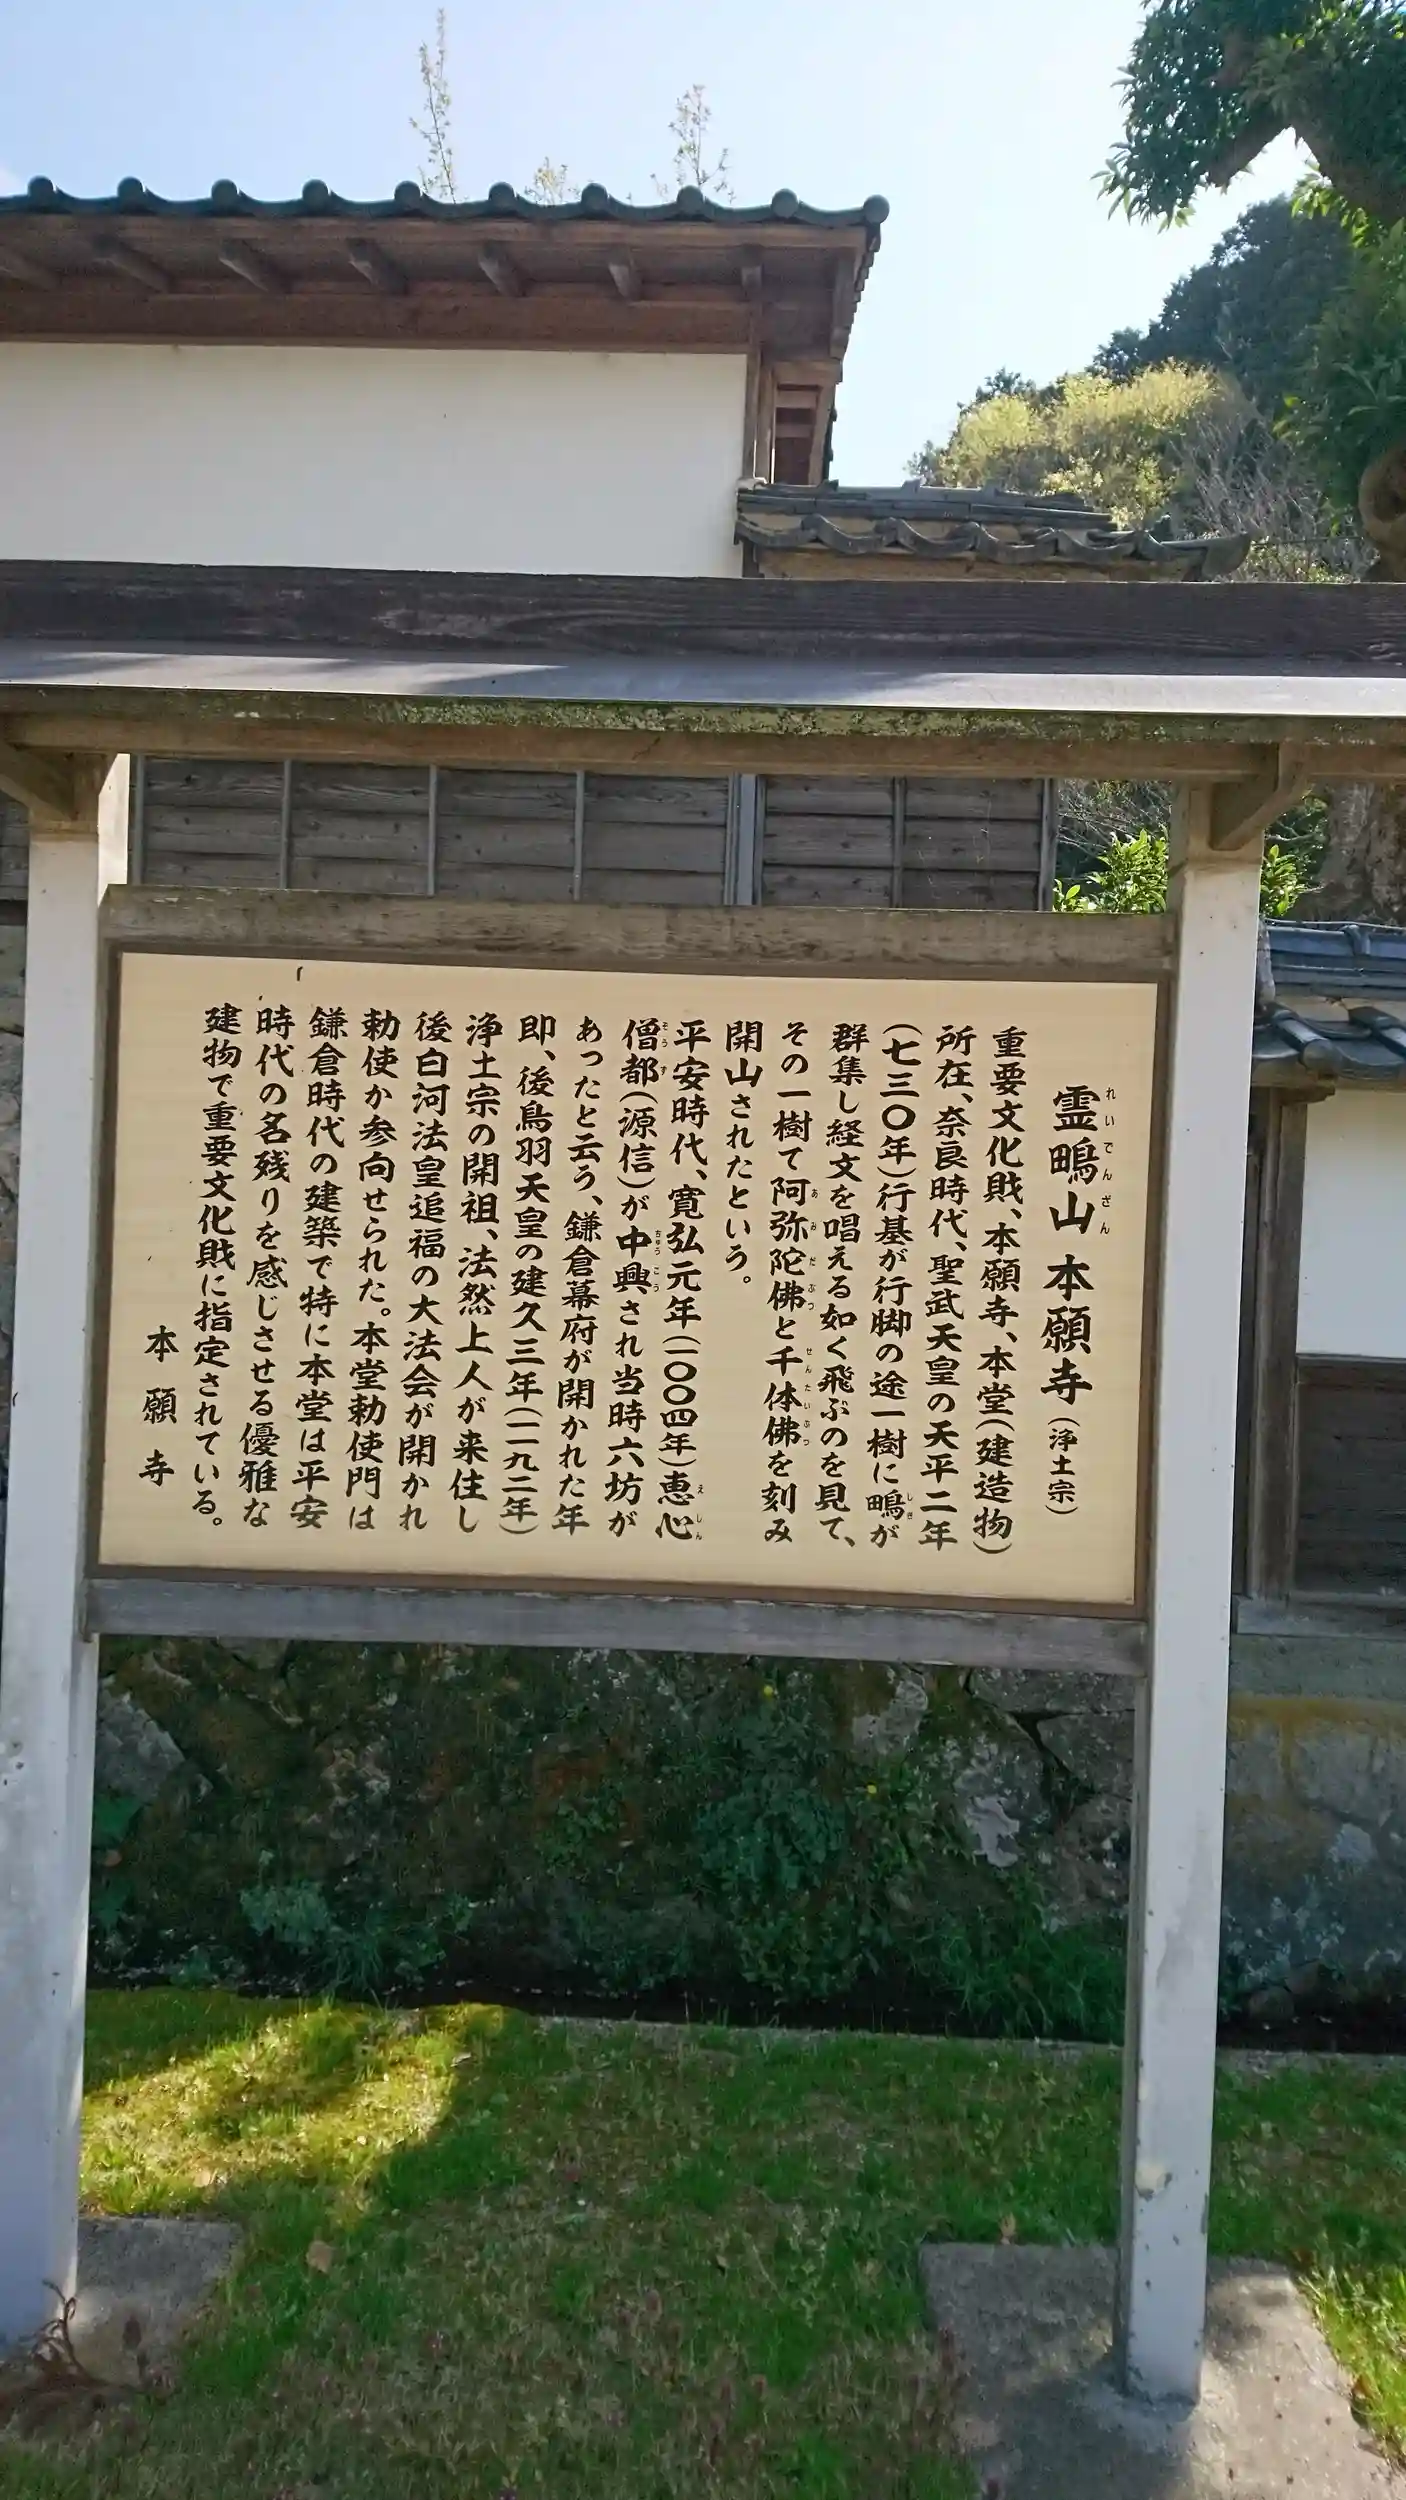 霊鴫山 本願寺(浄土宗)
重要文化財、本願寺、本堂(建造物)
所在、奈良時代、聖武天皇の天平二年
(七三〇年)行基が行脚の途一樹に鴫が
群集し経文を唱える如く飛ぶのを見て、
その一樹て阿弥陀佛と千体佛を刻み
開山されたという。
平安時代、寛弘元年(一〇〇四年)恵心
僧都(源信)が中興され当時六坊が
あったと云う、鎌倉幕府が開かれた年
即、後鳥羽天皇の建久三年(一一九二年)
浄土宗の開祖、法然上人が来住し
後白河法皇追福の大法会が開かれ
勅使か参向せられた。本堂勅使門は
鎌倉時代の建築で特に本堂は平安
時代の名残りを感じさせる優雅な
建物で重要文化財に指定されている。
本願寺